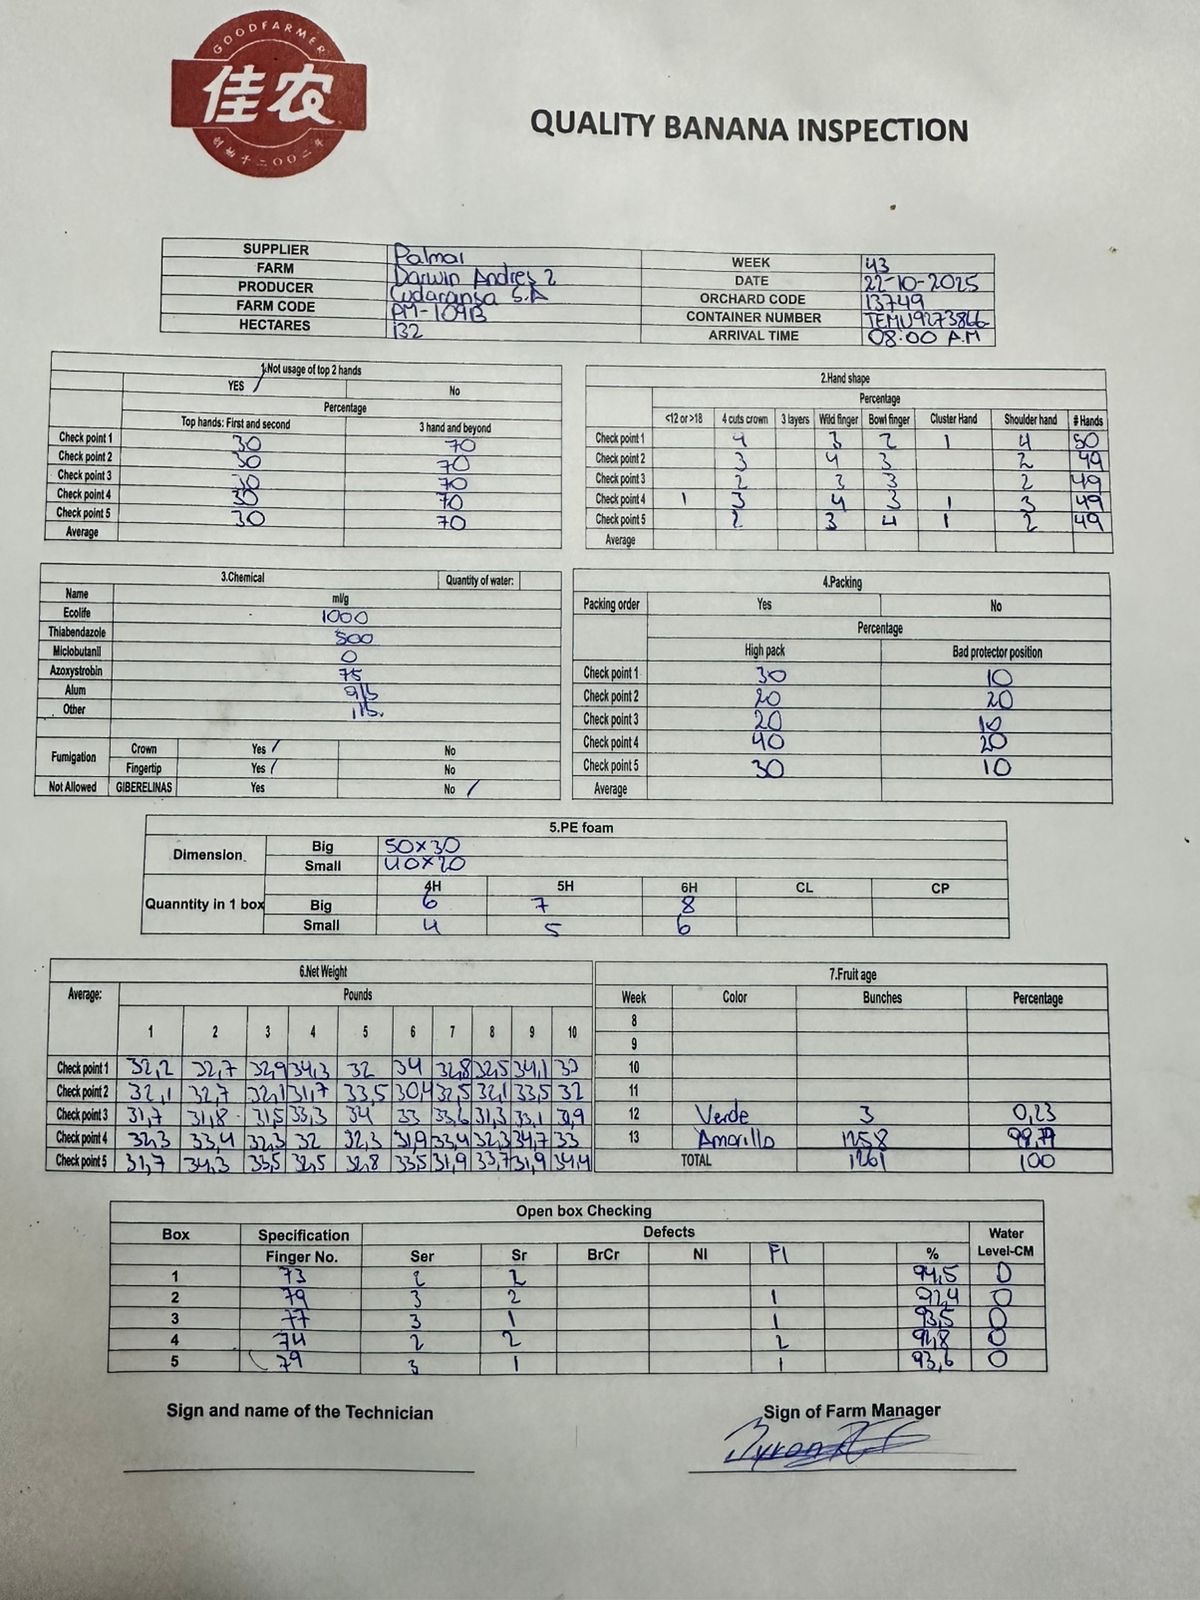 GOODFARMER
佳农
创始于二〇〇二年
QUALITY BANANA INSPECTION
SUPPLIER Palmar WEEK 43
FARM Darwin Andres 2 DATE 22-10-2025
PRODUCER S.A ORCHARD CODE 13749
FARM CODE PM-109B CONTAINER NUMBER TEMU9273866
HECTARES 132 ARRIVAL TIME 08:00 A.M
1.Not usage of top 2 hands
YES / No
Percentage
Top hands: First and second 3 hand and beyond
Check point 1 30 70
Check point 2 30 70
Check point 3 30 70
Check point 4 30 70
Check point 5 30 70
Average
2.Hand shape
Percentage
<12 or >18 4 cuts crown 3 layers Wild finger Bowl finger Cluster Hand Shoulder hand # Hands
Check point 1 4 3 2 1 4 50
Check point 2 3 4 3 2 49
Check point 3 2 3 3 2 49
Check point 4 1 3 4 3 1 3 49
Check point 5 2 3 4 1 2 49
Average
3.Chemical Quantity of water:
Name ml/g
Ecolife 1000
Thiabendazole 500
Miclobutanil 0
Azoxystrobin 75
Alum
Other
Fumigation Crown Yes / No
Fingertip Yes / No
Not Allowed GIBERELINAS Yes No /
4.Packing
Packing order Yes No
Percentage
High pack Bad protector position
Check point 1 30 10
Check point 2 20 20
Check point 3 20 10
Check point 4 40 20
Check point 5 30 10
Average
5.PE foam
Dimension Big 50x30
Small 40x20
4H 5H 6H CL CP
Quanntity in 1 box Big 6 7 8
Small 4 5 6
6.Net Weight
Average: Pounds
1 2 3 4 5 6 7 8 9 10
Check point 1 32,2 32,7 32,9 34,3 32 34 32,8 32,5 34,1 33
Check point 2 32,1 32,7 32,1 31,7 33,5 30,4 32,5 32,1 33,5 32
Check point 3 31,7 31,8 31,5 33,3 34 33 33,6 31,3 33,1 31,9
Check point 4 32,3 33,4 32,3 32 32,3 31,9 33,4 32,3 34,7 33
Check point 5 31,7 34,3 33,5 32,5 32,8 33,5 31,9 33,7 31,9 34,4
7.Fruit age
Week Color Bunches Percentage
8
9
10
11
12 Verde 3 0,23
13 Amarillo 1258 99,77
TOTAL 1261 100
Open box Checking
Box Specification Defects Water
Finger No. Ser Sr BrCr NI FI % Level-CM
1 73 2 2 94,5 0
2 79 3 2 1 92,4 0
3 77 3 1 1 93,5 0
4 74 2 2 2 91,8 0
5 79 3 1 1 93,6 0
Sign and name of the Technician Sign of Farm Manager